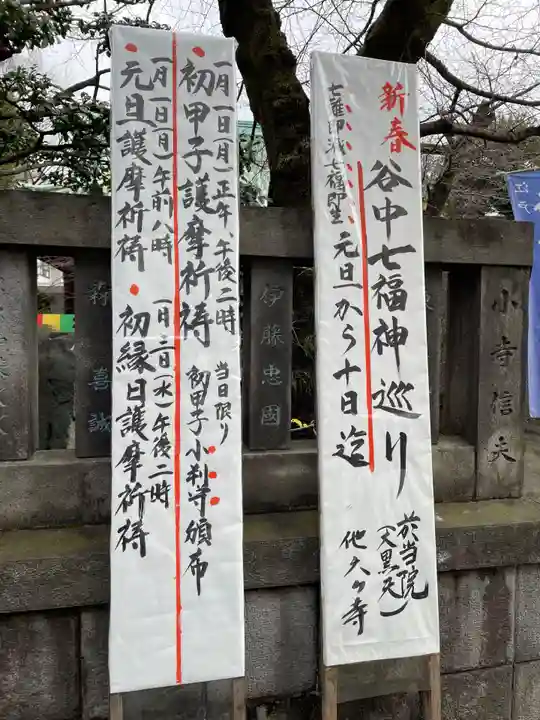 新春 谷中七福神巡り
於当院
(大黒天)
他六ヶ寺
七難即滅七福即生
元旦から十日迄
初甲子護摩祈祷
一月一日(月)正午、午後二時
当日限り
初甲子小判守頒布
元旦護摩祈祷
一月一日(月)午前八時
初縁日護摩祈祷
一月三日(水)午後二時
小寺信夫
伊藤忠國
森喜誠
江戸